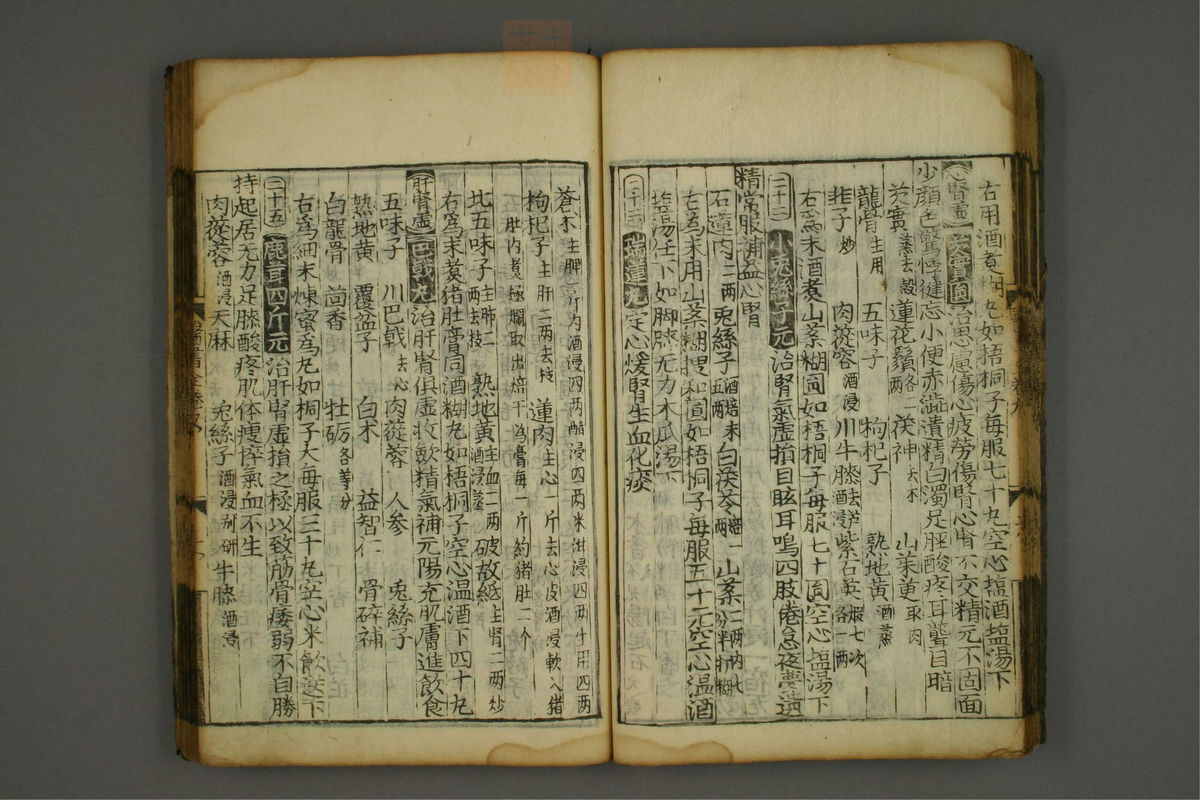 右用酒煮糊丸如梧桐子每服七十丸空心塩酒塩湯下
心腎虛 芡實圓 治思慮傷心疲勞傷腎心腎不交精元不固面
少顔色驚悸健忘小便赤澁遺精白濁足脛酸疼耳聾目暗
芡實蒸去殼 蓮花鬚各二兩 茯神去木 山茱萸取肉
龍骨生用 五味子 枸杞子 熟地黃酒蒸
韭子炒 肉蓯蓉酒浸 川牛膝去芦酒浸 紫石英煅七次各一兩
右爲末酒煮山薬糊圓如梧桐子每服七十圓空心塩湯下
二十二 小兔絲子元 治腎氣虛損目眩耳鳴四肢倦怠夜夢遺
精常服補益心腎
石蓮肉二兩 兔絲子酒焙末五兩 白茯苓一兩 山薬二兩内七分半打糊
右為末用山薬糊搜和圓如梧桐子每服五十元空心温酒
塩湯任下如脚膝无力木瓜湯下
二十三 瑞蓮丸 定心煖腎生血化痰
蒼朮主脾一斤内酒浸四兩醋浸四兩米泔浸四兩生用四兩
枸杞子主肝二兩去枝 蓮肉主心一斤去心皮酒浸軟入猪
肚内煮極爛取出焙干為膏每一斤約猪肚二个
北五味子主肺二兩去枝 熟地黃主血二兩酒浸蒸 破故紙主腎二兩炒
右爲末煑猪肚膏同酒糊丸如梧桐子空心温酒下四十丸
肝腎虛 巴戟丸 治肝腎俱虛收歛精氣補元陽充肌膚進飲食
五味子 川巴戟去心 肉蓯蓉 人参 兔絲子
熟地黃 覆盆子 白朮 益智仁 骨碎補
白龍骨 茴香 牡砺各等分
右爲細末煉蜜爲丸如桐子大每服三十丸空心米飲送下
二十五 鹿茸四斤元 治肝腎虛損之極以致筋骨痿弱不自勝
持起居无力足膝酸疼肌体瘦悴氣血不生
肉蓯蓉酒浸 天麻 兔絲子酒浸别研 牛膝酒浸